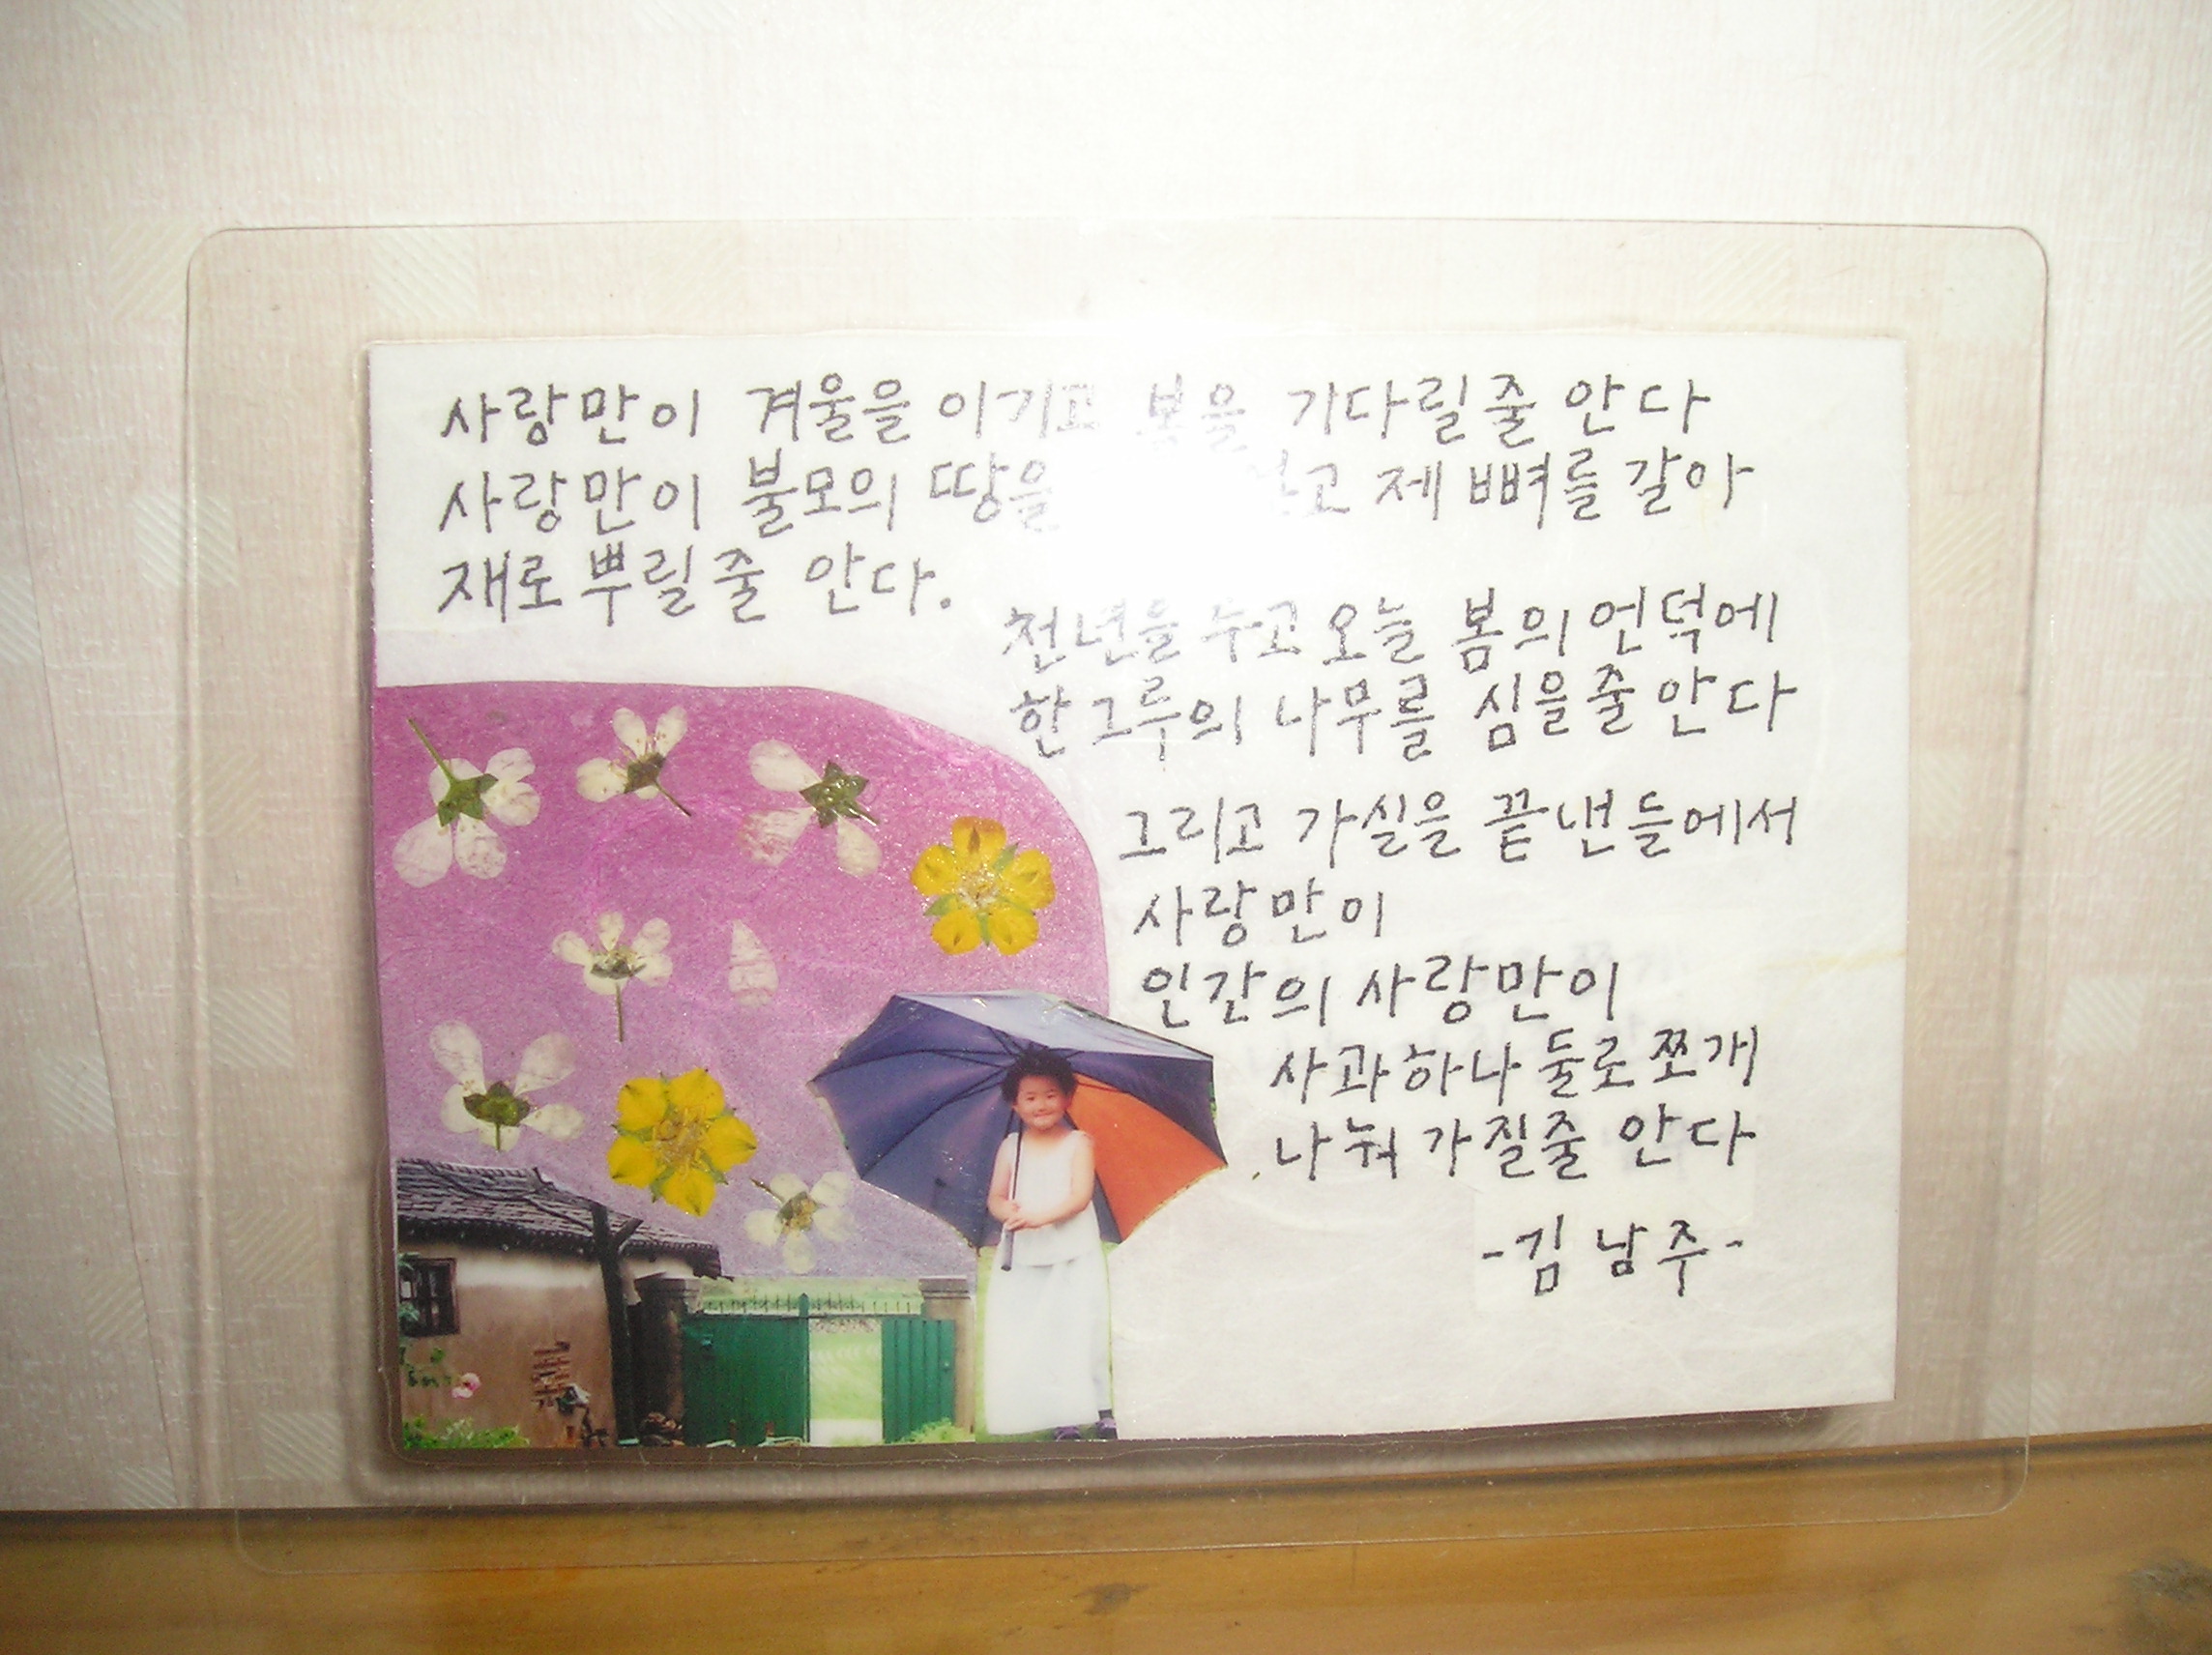 사랑만이 겨울을 이기고 봄을 기다릴줄 안다
사랑만이 불모의 땅을 제 뼈를 갈아
재로 뿌릴줄 안다.
천년을 두고 오늘 봄의 언덕에
한그루의 나무를 심을줄 안다
그리고 가실을 끝낸들에서
사랑만이
인간의 사랑만이
사과하나 둘로쪼개
나눠 가질줄 안다
-김남주-